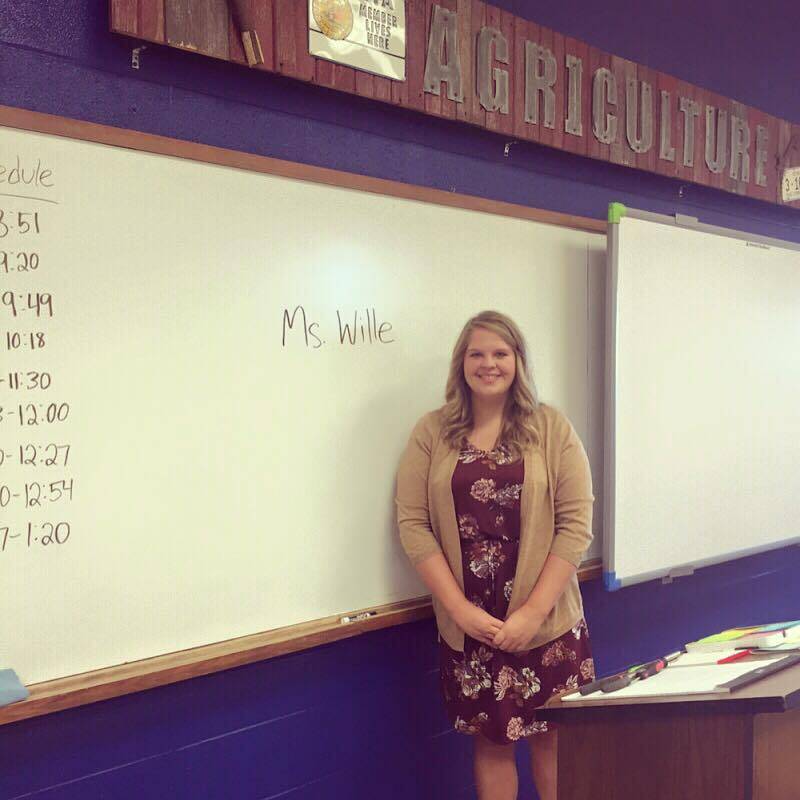 MEMBER
LIVES
HERE
AGRICULTURE
edule
8:51
9:20
9:49
10:18
-11:30
-12:00
-12:27
-12:54
7-1:20
Ms. Wille